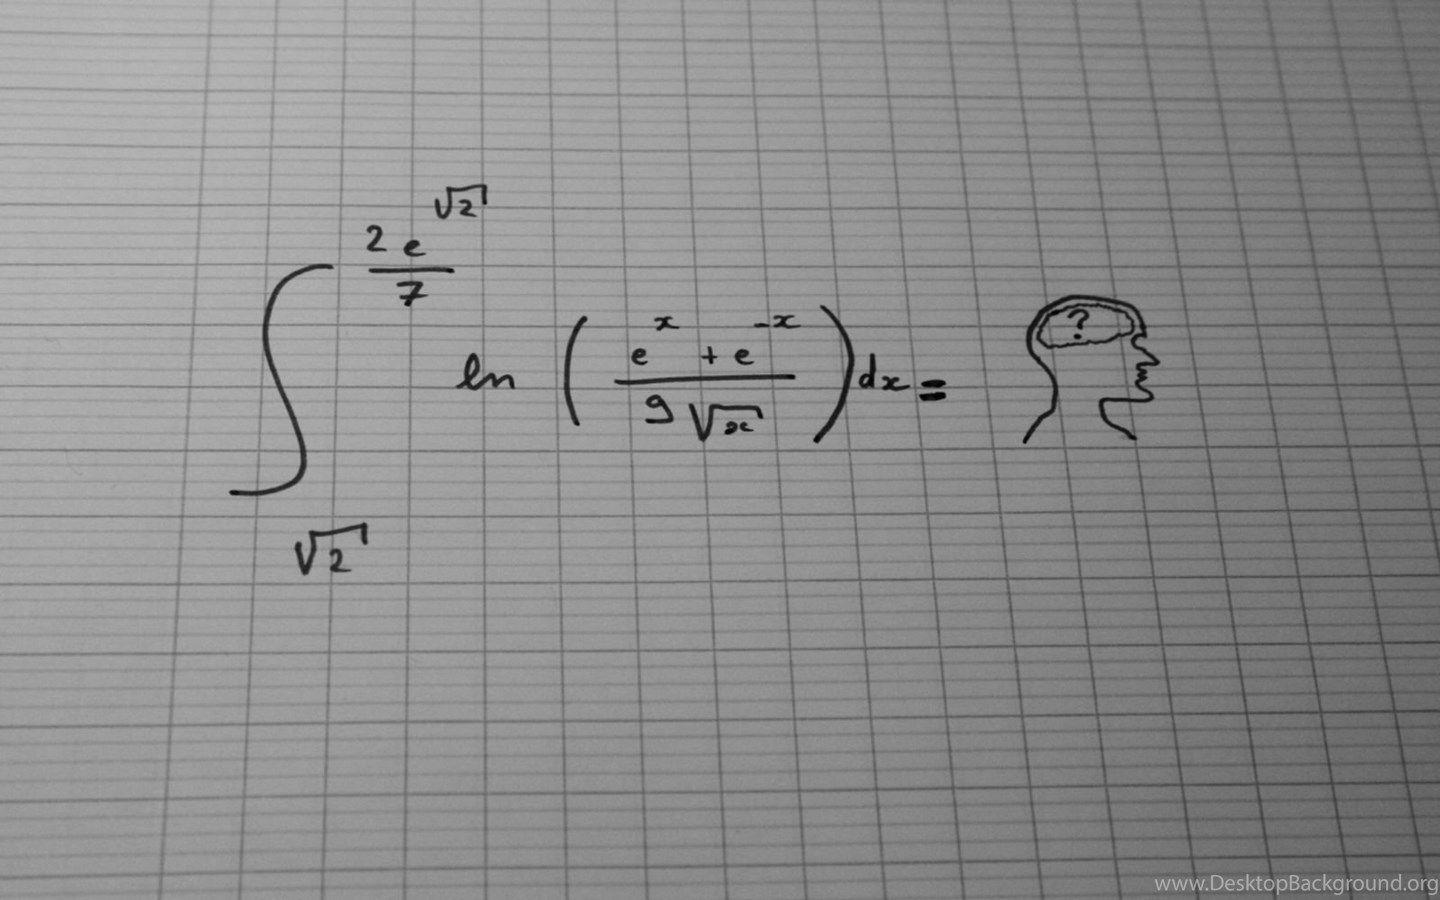 ∫_{√2}^{2e^{√2}/7} ln ( (e^x + e^{-x}) / (9√x) ) dx =
?
www.DesktopBackground.org